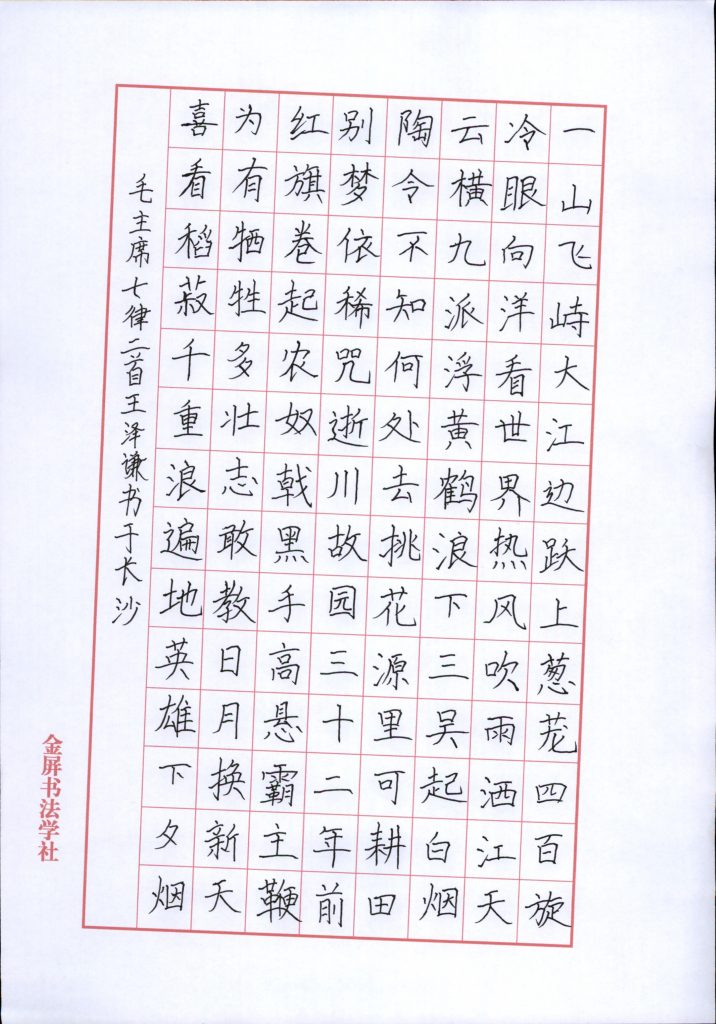 一山飞峙大江边跃上葱茏四百旋
冷眼向洋看世界热风吹雨洒江天
云横九派浮黄鹤浪下三吴起白烟
陶令不知何处去挑花源里可耕田
别梦依稀咒逝川故园三十二年前
红旗卷起农奴戟黑手高悬霸主鞭
为有牺牲多壮志敢教日月换新天
喜看稻菽千重浪遍地英雄下夕烟
毛主席七律二首王泽谦书于长沙
金屏书法学社